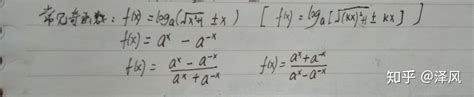 常见奇函数: f(x)=logₐ(√(x²+1) ± x) [ f(x)=logₐ[√((kx)²+1) ± kx] ]
f(x) = aˣ - a⁻ˣ
f(x) = (aˣ - a⁻ˣ)/(aˣ + a⁻ˣ) f(x) = (aˣ + a⁻ˣ)/(aˣ - a⁻ˣ)
知乎 @泽风